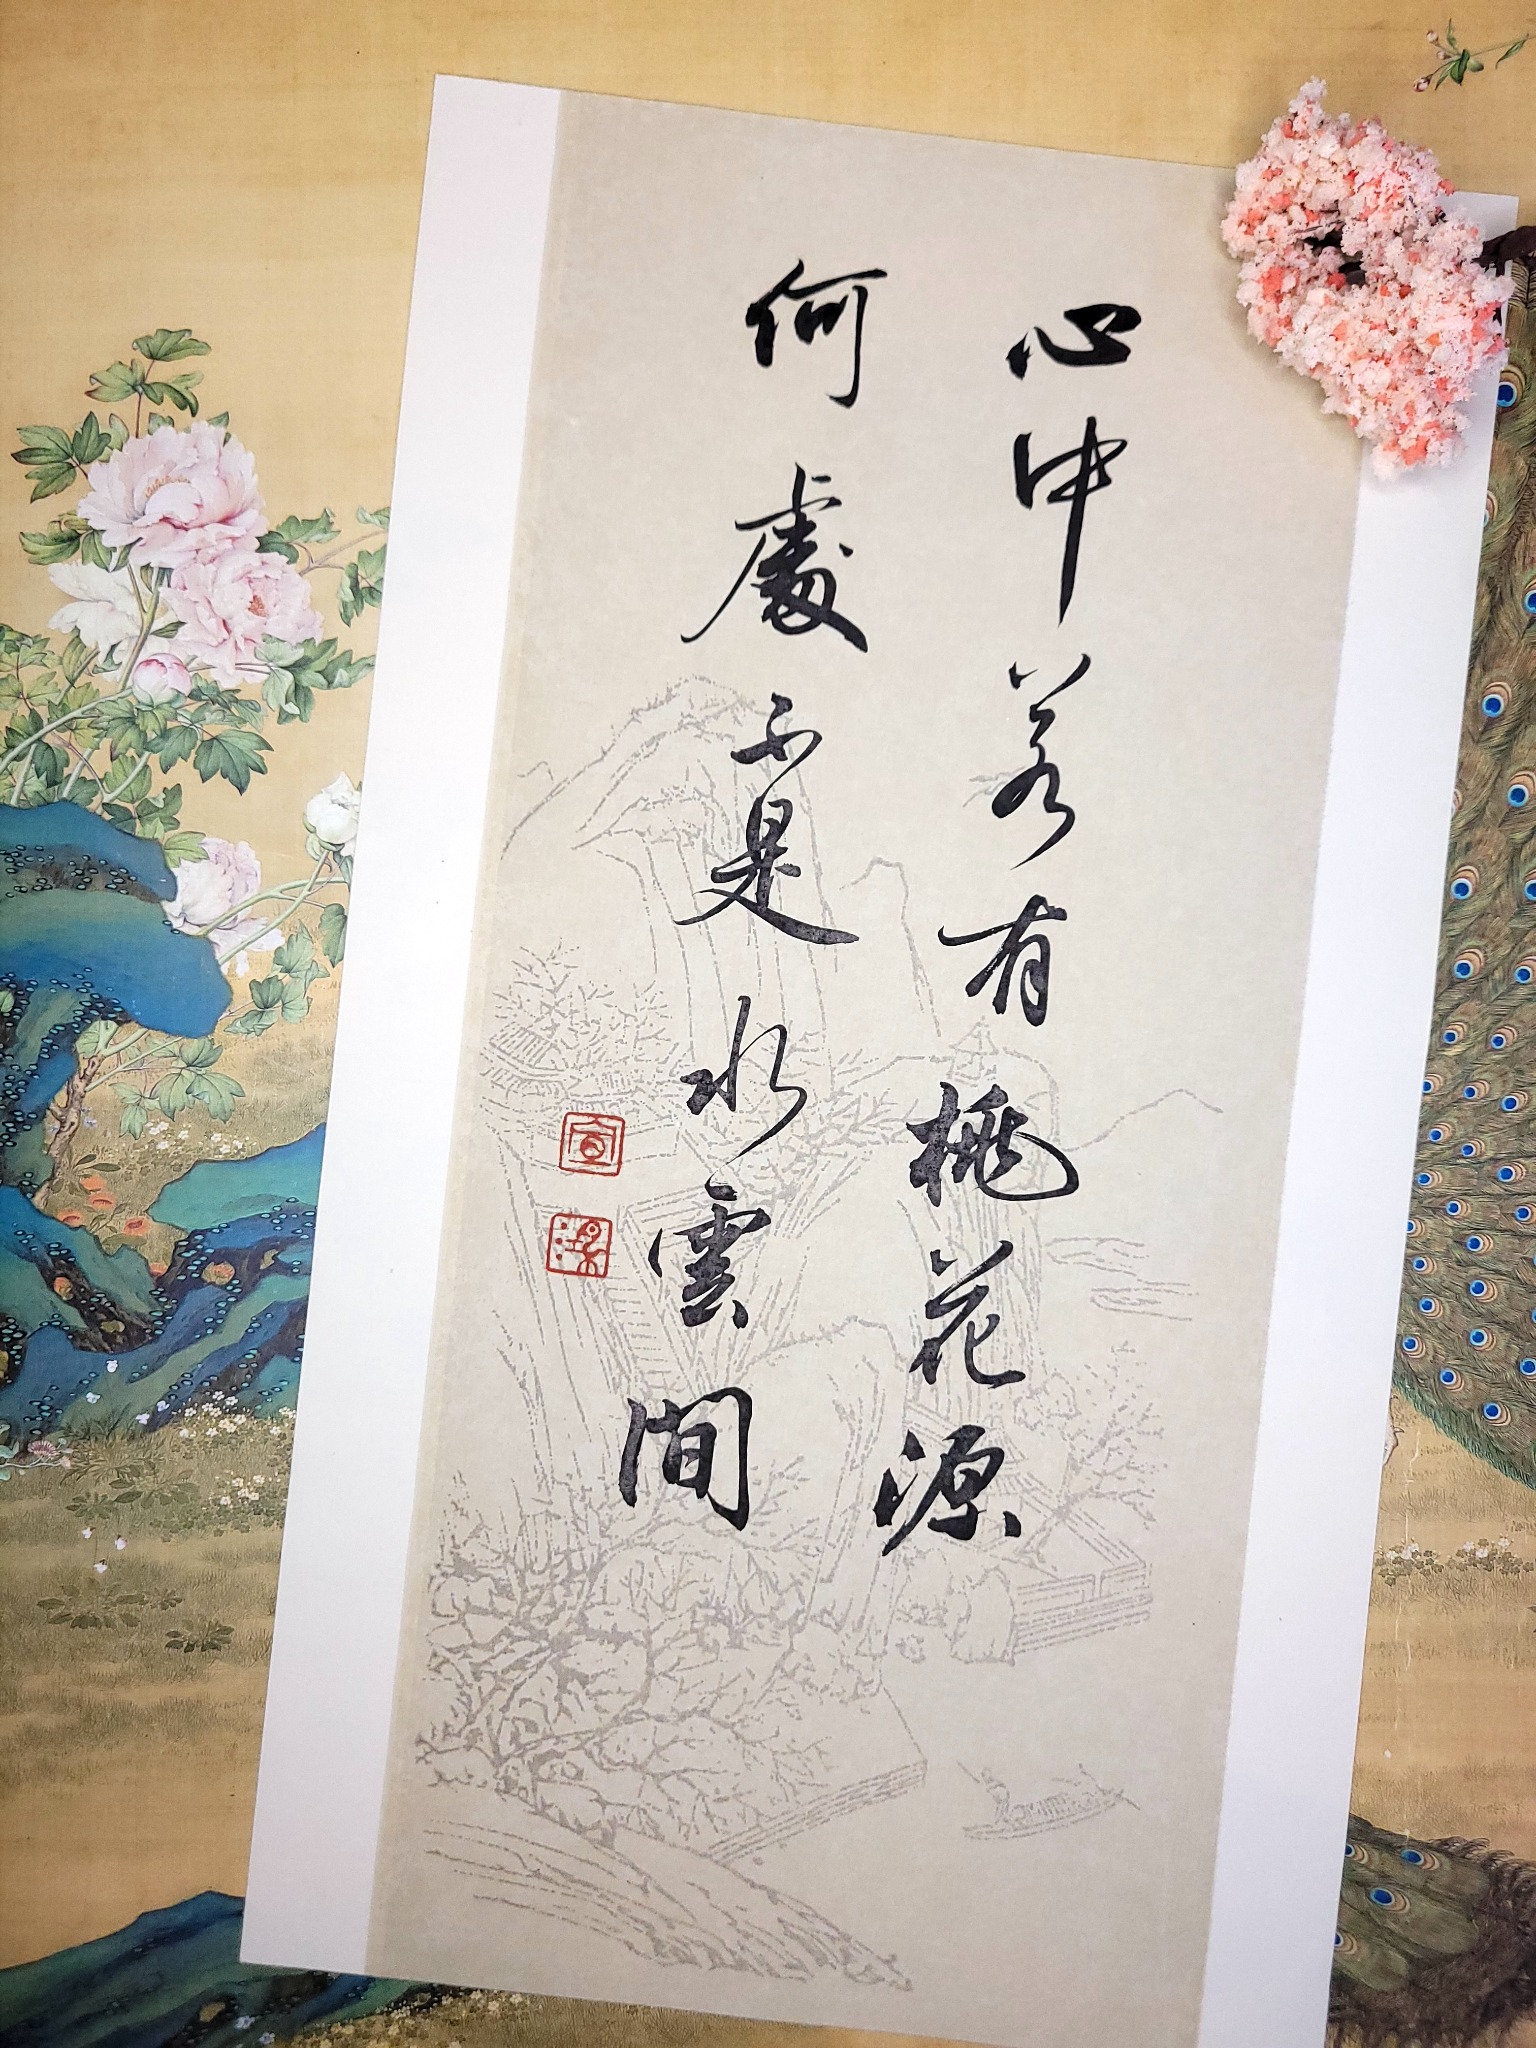 心中若有桃花源
何處不是水雲間